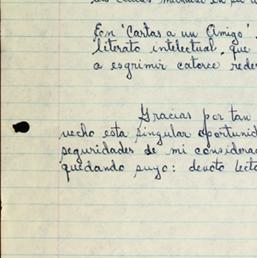 En "Cartas a un Amigo".
literato intelectual, que
a esgrimir catorce
Gracias por tan
vecho esta singular
seguridades de mi
quedando suyo: devoto